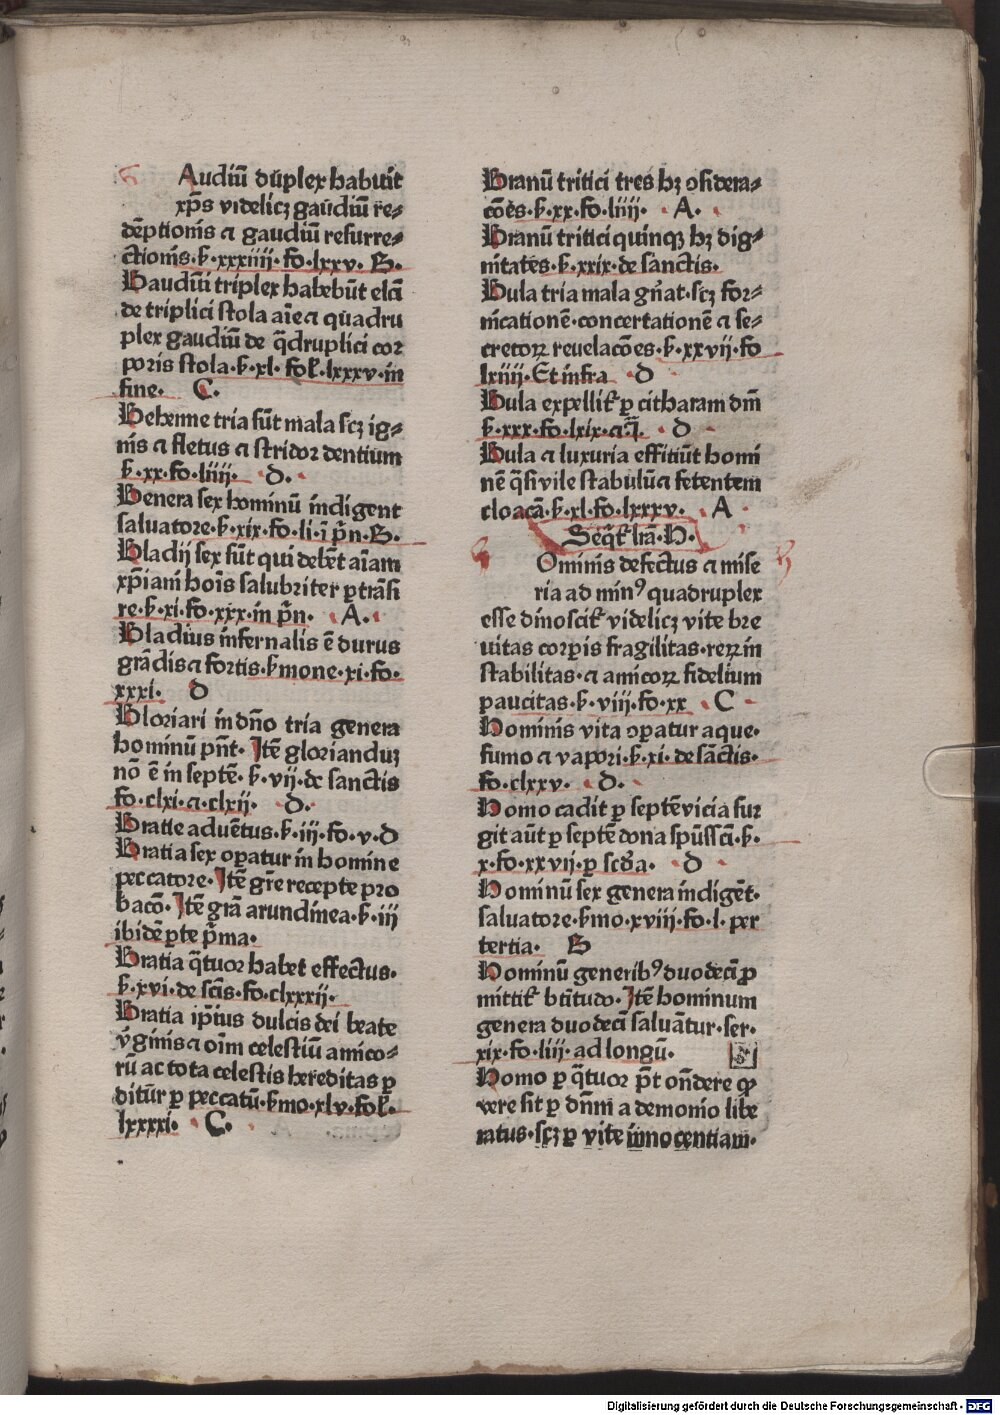 Audiū duplex habuit
xp̄s videlicꝫ gaudiū re⸗
dēptionis ⁊ gaudiū resurre⸗
ctionis·ẜ·xxxiiij·fo·lxxv·G·
Gaudiū triplex habebūt elcī
de triplici stola aīe ⁊ quadru
plex gaudiū de q̄druplici cor
poris stola·ẜ·xl·fol̄·lxxxv·in
fine· C·
Gehenne tria sūt mala scꝫ ig⸗
nis ⁊ fletus ⁊ stridor dentium
ẜ·xx·fo·liiij· D·
Genera sex hominū indigent
saluatore·ẜ·xix·fo·li·ī p̄n·G·
Gladij sex sūt qui debēt aīam
xp̄iani hoīs salubriter ꝑtrāsi
re·ẜ·xi·fo·xxx·in p̄n· A·
Gladius infernalis ē durus
grādis ⁊ fortis·ẜmone·xi·fo·
xxxi· D
Gloriari in dn̄o tria genera
hominū pn̄t·Itē glorianduꝫ
nō ē in septē·ẜ·vij·de sanctis
fo·clxi·⁊·clxij· D·
Gratie aduētus·ẜ·iij·fo·v·D
Gratia sex oꝑatur in homine
peccatore·Itē gr̄e recepte pro
bacō·Itē grā arundinea·ẜ·iij
ibidē ꝑte p̄ma·
Gratia q̄tuor habet effectus·
ẜ·xvi·de scīs·fo·clxxxij·
Gratia ip̄ius dulcis dei beate
v̄ginis ⁊ oīm celestiū amico⸗
rū ac tota celestis hereditas ꝑ
ditūr ꝑ peccatū·ẜmo·xlv·fol̄·
lxxxxi· C·
Granū tritici tres hꝫ ↄsidera⸗
cōēs·ẜ·xx·fo·liiij· A·
Granū tritici quinqꝫ hꝫ dig⸗
nitates·ẜ·xxix·de sanctis·
Gula tria mala gn̄at·scꝫ for⸗
nicationē·concertationē ⁊ se⸗
cretorꝝ reuelacōes·ẜ·xxvij·fo
lxiiij·Et infra D
Gula expellit̄ ꝑ citharam dm̄
ẜ·xxx·fo·lxix·⁊·i· D
Gula ⁊ luxuria effitiūt homi
nē q̄si vile stabulū ⁊ fetentem
cloacā·ẜ·xl·fo·lxxxv· A
Seq̄t̄ lrā·H·
Ominis defectus ⁊ mise
ria ad minꝰ quadruplex
esse dinoscit̄ videlicꝫ vite bre
uitas corꝑis fragilitas·rerꝝ in
stabilitas·⁊ amicorꝝ fidelium
paucitas·ẜ·viij·fo·xx C
Hominis vita oꝑatur aque·
fumo ⁊ vapori·ẜ·xi·de sāctis·
fo·clxxv· D·
Homo cadit ꝑ septē vicia sur
git aūt ꝑ septē dona sp̄ussc̄i·ẜ·
x·fo·xxvij·ꝑ scd̄a· D
Hominū sex genera indigēt·
saluatore·ẜmo·xviij·fo·l·per
tertia· G
Hominū generibꝰ duodecī ꝓ
mittit̄ bt̄itudo·Itē hominum
genera duodecī saluātur·ser·
xix·fo·liij·ad longū·
Homo ꝑ q̄tuor pt̄ ondere qꝫ
vere sit ꝑ dn̄m a demonio libe
ratus·scꝫ ꝑ vite innocentiam·
Digitalisierung gefördert durch die Deutsche Forschungsgemeinschaft - DFG